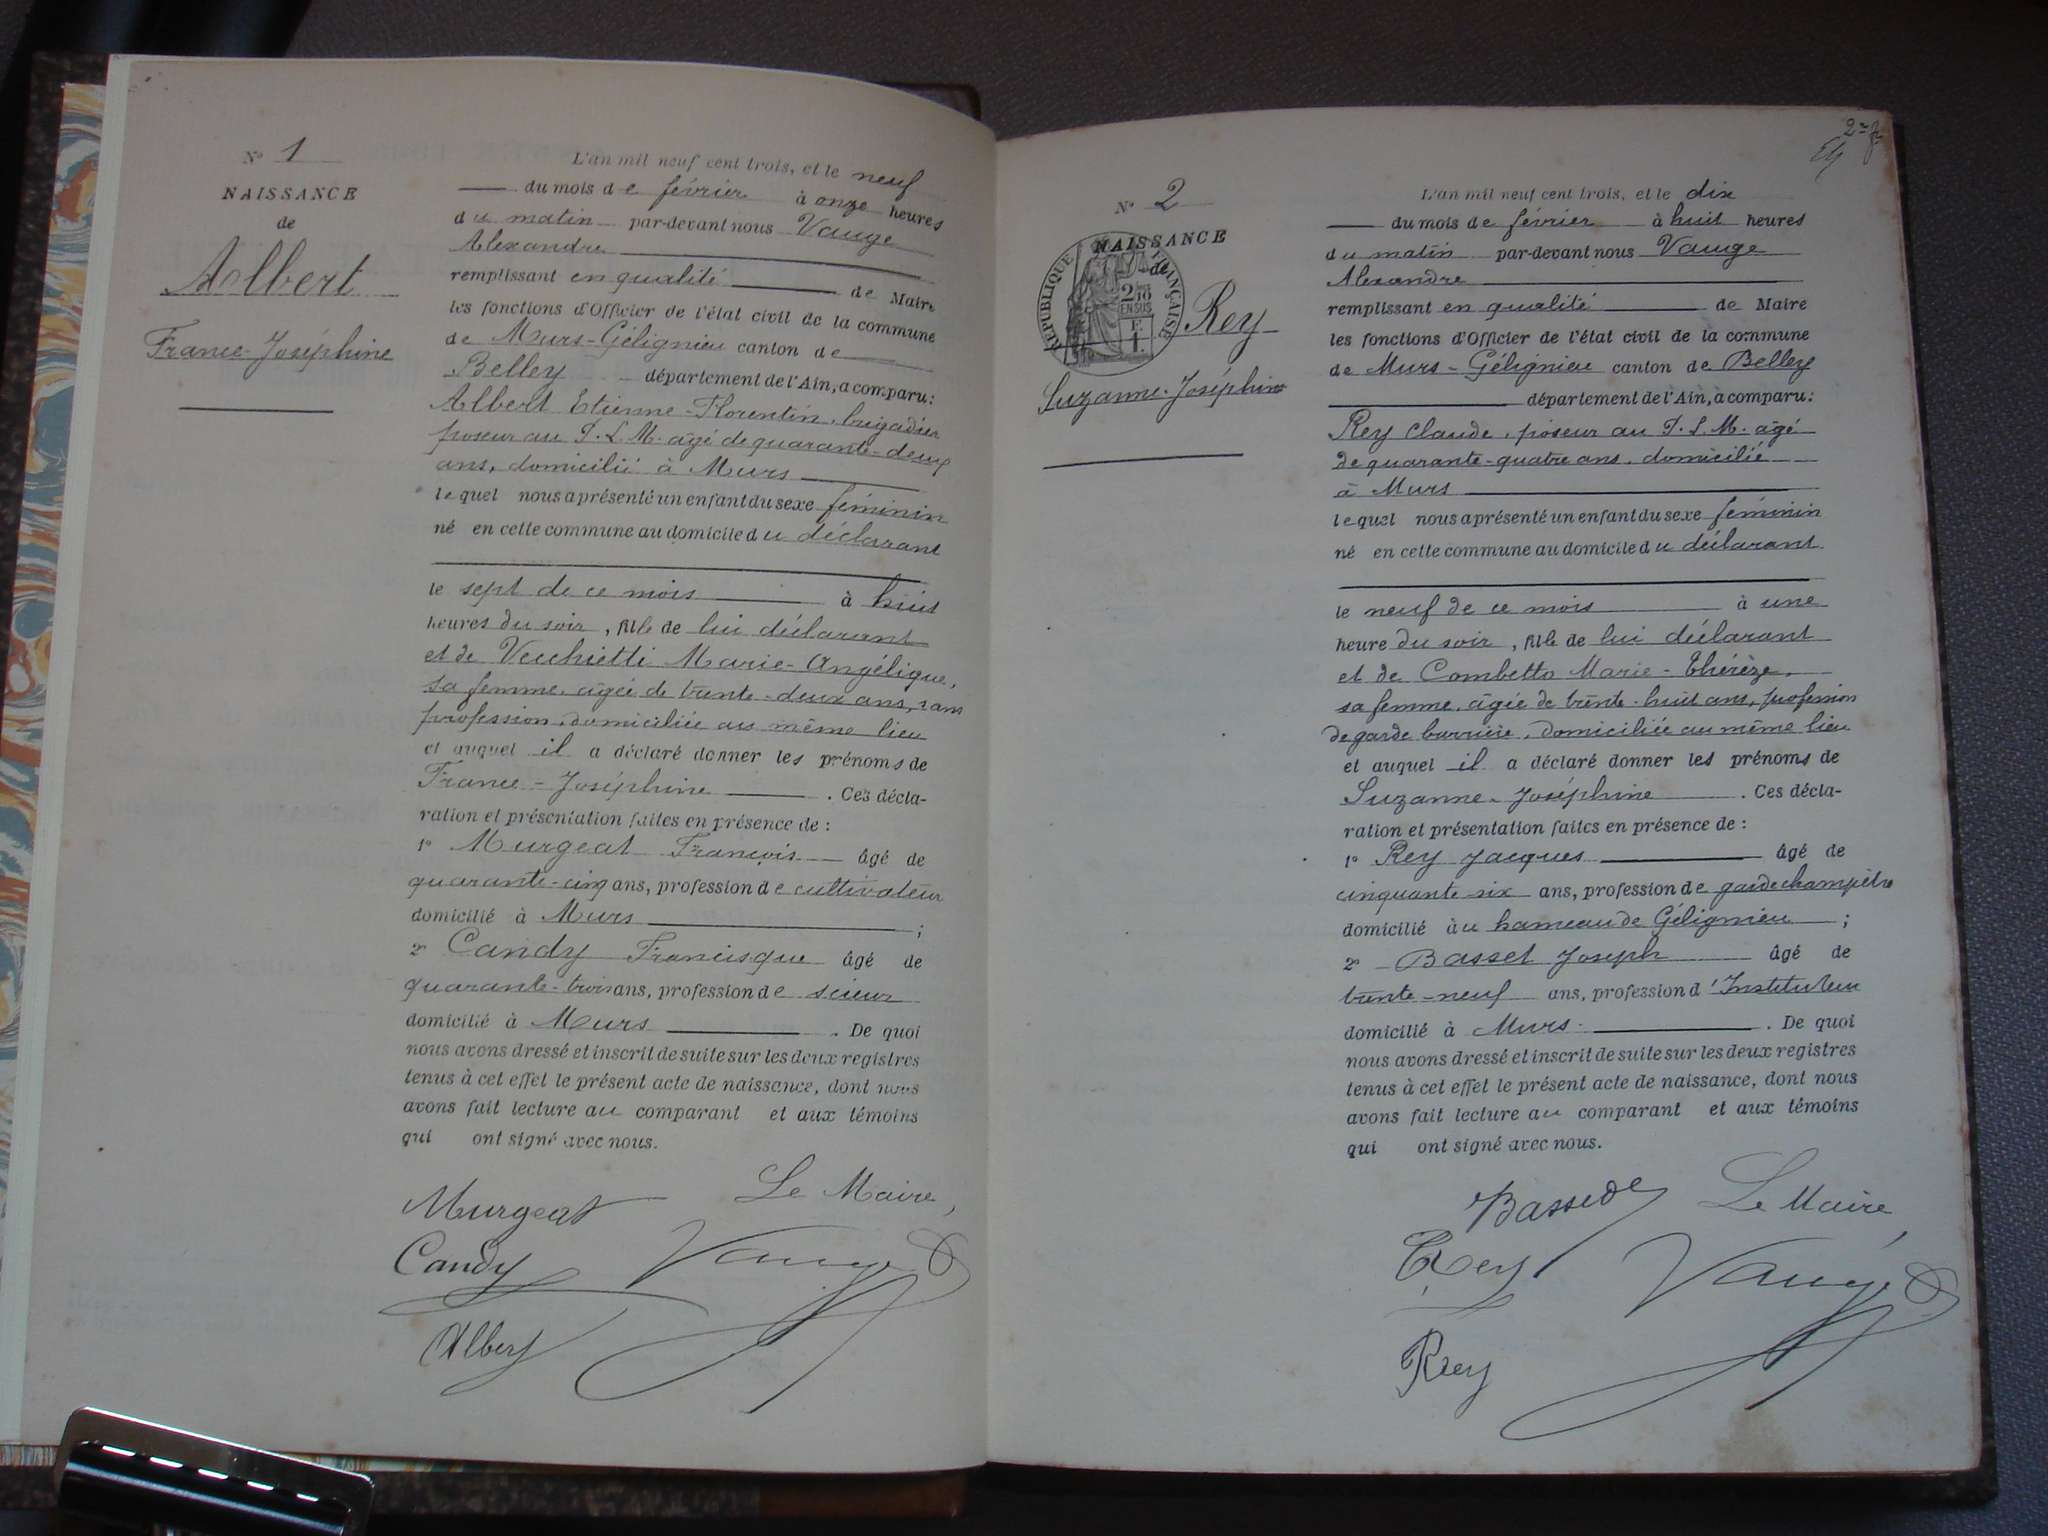 N° 1
NAISSANCE
de
Albert
France-Joséphine
L'an mil neuf cent trois, et le neuf
du mois de février à onze heures
du matin par-devant nous Vauge
Alexandre
remplissant en qualité de Maire
les fonctions d'Officier de l'état civil de la commune
de Murs-Gélignieu canton de
Belley département de l'Ain, a comparu:
Albert Etienne-Florentin, brigadier
poseur au P. L. M. âgé de quarante-deux
ans, domicilié à Murs
lequel nous a présenté un enfant du sexe féminin
né en cette commune au domicile du déclarant
le sept de ce mois à huit
heures du soir, fille de lui déclarant
et de Vecchietti Marie-Angélique,
sa femme, âgée de trente-deux ans, sans
profession, domiciliée au même lieu
et auquel il a déclaré donner les prénoms de
France-Joséphine. Ces décla-
ration et présentation faites en présence de:
1° Murgeat François âgé de
quarante-cinq ans, profession de cultivateur
domicilié à Murs;
2° Candy Francisque âgé de
quarante-trois ans, profession de scieur
domicilié à Murs. De quoi
nous avons dressé et inscrit de suite sur les deux registres
tenus à cet effet le présent acte de naissance, dont nous
avons fait lecture au comparant et aux témoins
qui ont signé avec nous.
Murgeat Le Maire,
Candy Vauge
Albert
2me f.
N° 2
NAISSANCE
de
RÉPUBLIQUE FRANÇAISE
2/10
EN SUS
F.
1.
Rey
Suzanne-Joséphine
L'an mil neuf cent trois, et le dix
du mois de février à huit heures
du matin par-devant nous Vauge
Alexandre
remplissant en qualité de Maire
les fonctions d'Officier de l'état civil de la commune
de Murs-Gélignieu canton de Belley
département de l'Ain, a comparu:
Rey Claude, poseur au P. L. M. âgé
de quarante-quatre ans, domicilié
à Murs
lequel nous a présenté un enfant du sexe féminin
né en cette commune au domicile du déclarant
le neuf de ce mois à une
heure du soir, fille de lui déclarant
et de Combetto Marie-Thérèze,
sa femme, âgée de trente-huit ans, profession
de garde barrière, domiciliée au même lieu
et auquel il a déclaré donner les prénoms de
Suzanne-Joséphine. Ces décla-
ration et présentation faites en présence de:
1° Rey Jacques âgé de
cinquante-six ans, profession de garde champêtre
domicilié au hameau de Gélignieu;
2° Basset Joseph âgé de
trente-neuf ans, profession d'Instituteur
domicilié à Murs. De quoi
nous avons dressé et inscrit de suite sur les deux registres
tenus à cet effet le présent acte de naissance, dont nous
avons fait lecture au comparant et aux témoins
qui ont signé avec nous.
Basset Le Maire,
Rey Vauge
Rey